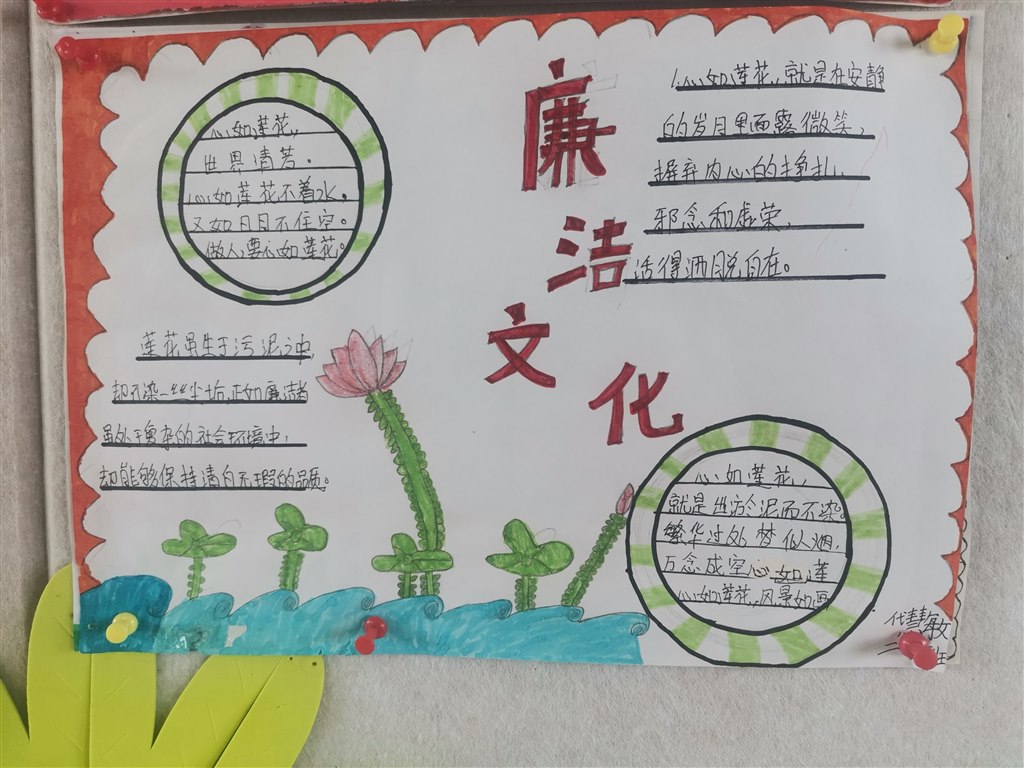 廉洁文化
心如莲花,
世界清芳。
心如莲花不着水。
又如日月不住空。
做人要心如莲花。
心如莲花,就是在安静
的岁月里面露微笑,
摒弃内心的挣扎,
邪念和虚荣,
活得洒脱自在。
莲花虽生于污泥之中
却不染一丝尘垢,正如廉洁者
虽处于复杂的社会环境中,
却能够保持清白无瑕的品质。
心如莲花,
就是出於泥而不染
繁华过处,梦似人烟,
万念成空心如莲
心如莲花,风景如画